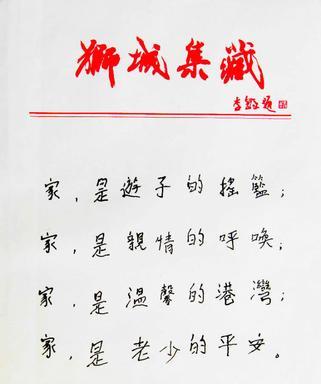 獅城集藏
家，是遊子的搖籃；
家，是親情的呼喚；
家，是溫馨的港灣；
家，是老少的平安。